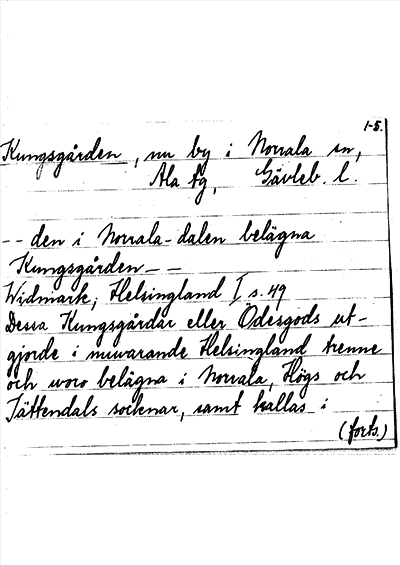 1-5.
Kungsgården, nu by i Norrala sn,
Ala tg, Gävleb. l.
-- den i Norrala-dalen belägna
Kungsgården--
Widmark, Helsingland I s. 49
Dessa Kungsgårdar eller Ödesgods ut-
gjorde i nuwarande Helsingland trenne
och woro belägna i Norrala, Högs och
Jättendals socknar, samt kallas i
(forts.)